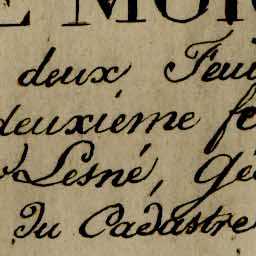 E MOR
deux Feui
deuxiéme fe
Lesné, Gé
Du Cadastre